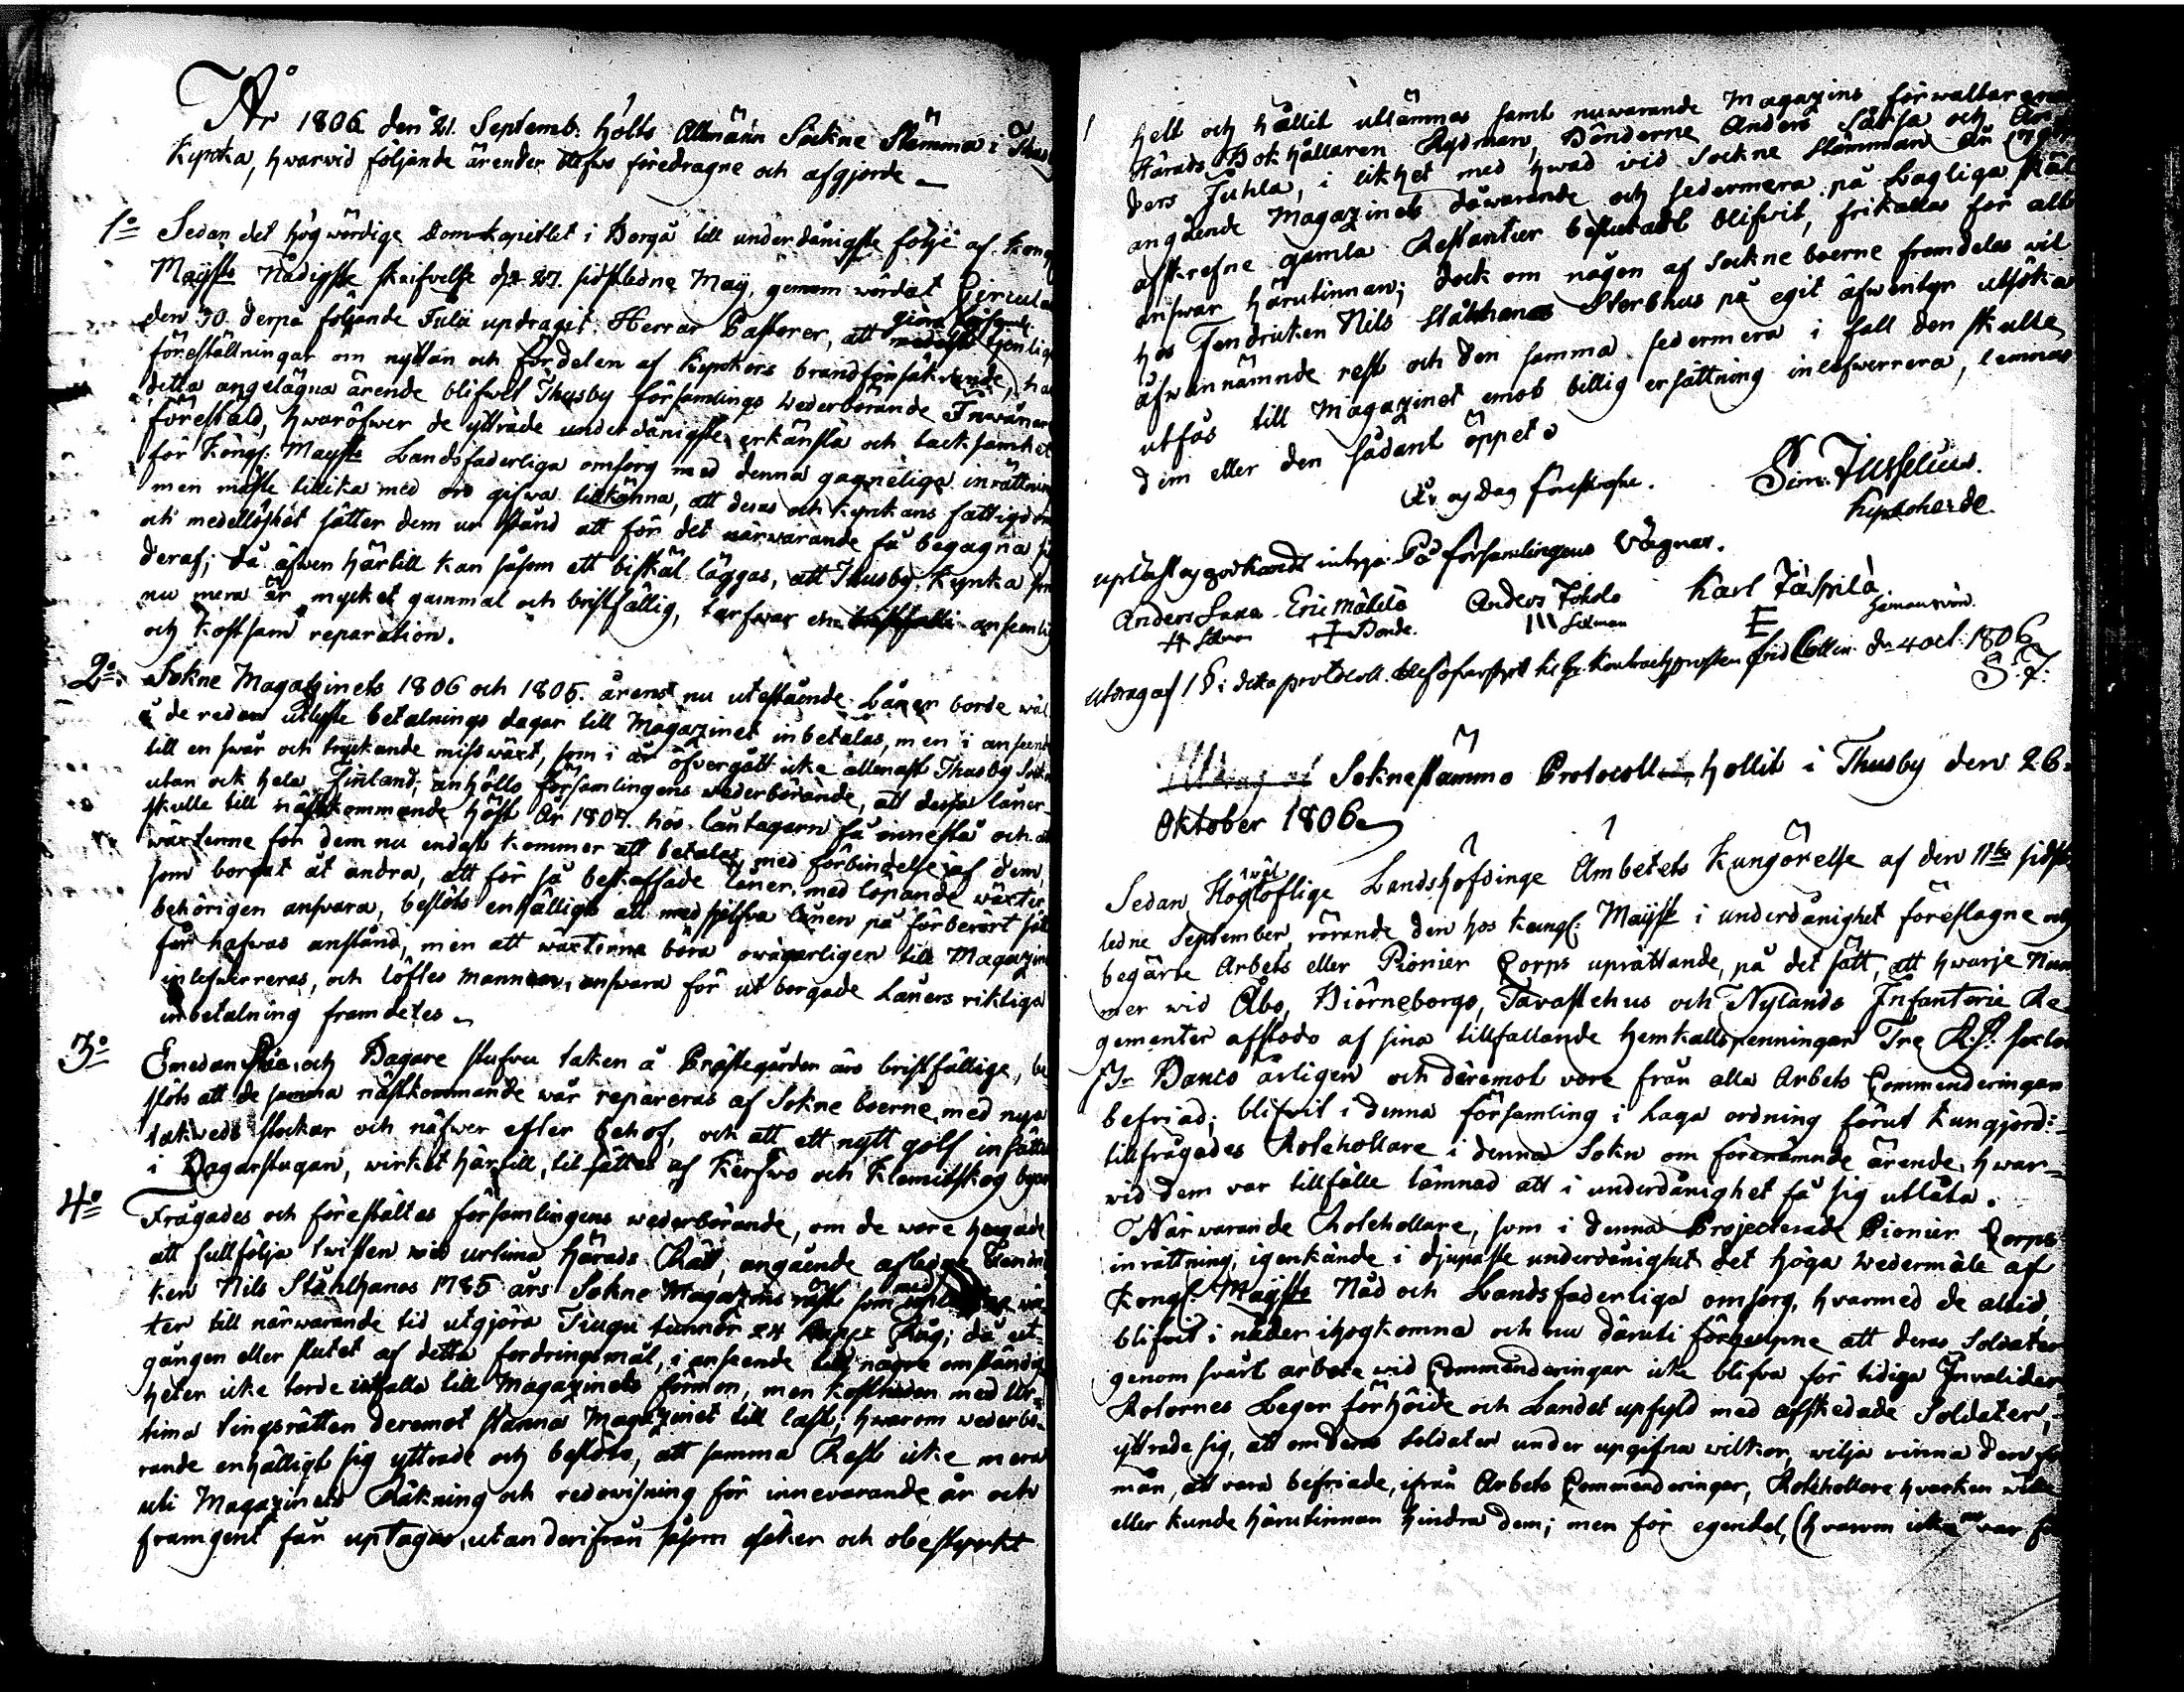 År 1806 den 21. Septemb. hölts Allmänn Sockne Stämma i Thusby
Kyrcka, hvarvid följande ärender blefvo föredragne och afgjorde
1o Sedan det högwördige Domkapitlet i Borgå till underdånigste följe af Kongl
Maysts Nådigste skrifvelse af 27. sidstledne Maij, genom wördat Circulair
den 30. derpå följande Julii updragit Herrar Pastorer, att göra tjenlige
föreställningar om nyttan och fördelen af Kyrkors brandförsäkrande, har
detta angelägna ärende blifwit Thusby församlings wederbörande Inwånare
förestäld, hwaröfwer de yttrade underdånigste erkänsla och tacksamhet
för Kongl: Maysts Landsfaderliga omsorg med denna gagneliga inrättning
men måste tillika med oro gifwa tillkänna, att deras och Kyrkans fattigdom
och medellöshet sätter dem ur stånd att för det närwarande få begagna sig
deraf; då äfwen härtill kan såsom ett biskäl läggas, att Thusby Kyrka som
nu mera är mycket gammal och bristfällig, tarfwar en ansenlig
och kostsam reparation.
2o. Sokne Magazinets 1806 och 1805. årens nu utestående Låner borde wäl
å de redan utlyste betalnings dagar till Magazinet inbetalas, men i anseende
till en swår och tryckande misswäxt, som i år öfvergått icke allenast Thusby Sokn
utan ock hela Finland; anhölls församlingens wederbörande, att dessa låner
skulle till nästkommande höst År 1807. hos låntagarn få innestå och at
wäxterne för dem nu endast kommer att betalas med förbindelse af dem,
som borgat åt andra, att för så beskaffade låner, med löpande wäxter
behörigen answara, beslöts enhälligt att med sjelfva lånen på förberört sätt
får hafwas anstånd, men att wäxterne böra owägarligen till Magazinet
inlefwerreras, och löftes mannen answara för utborgade Låners riktiga
inbetalning framdeles
3o Emedan och Bagare stufvu taken å Prästegården äro bristfällige, be
slöts att de samma nästkommande wår repareras af Sokneboerne med nya
takweds stockar och näfwer efter behof, och att ett nytt golf insättes
i Bagarstugan, wirket härtill, tilsättes af Kerfwo och Klemitskog byar
4o Frågades och föreställtes församlingens wederbörande, om de wore hugade
att fullfölja twisten wid urtima Härads Rätt, angående afledne Fendri
ken Nils Stålhanes 1785 års Sokne Magazins räst som med wäx
ter till närwarande tid utgjöra Tiugu tunnor 24 Kappe Råg; då ut-
gången eller slutet af detta fordringsmål, i anseende till några omständig
heter icke torde utfalla till Magazinets förmon, men kostnaden med Ur-
tima tingsrätten deremot stanna Magazinet till last; hwarom wederbö-
rande enhälligt sig yttrade och beslöts, att samma Rest icke mera
uti Magazinets Räkning och redowisning för innevarande år och
framgent får uptagas, utan derifrån såsom osäker och obestyrkt
helt och hållit utlämnas samt nuwarande Magazins förwaltarena
Härads Bokhållaren Rydman, Bönderne Anders Saxa och An
ders Juhla, i likhet med hwad vid Sockne Stämman
angående Magazinets dåwarande och sedermera på Lagliga skäl
afskrefne gamla Restantier beslutadt blifvit, frikallas för allt
answar härutinnan; dock om någon af Sockneboerne framdeles wil
hos Fendricken Nils Stålhanes Sterbhus på egit äfwentyr utsöka
äfwannämnde rest och den samma sedermera i fall den skulle
utfås till Magazinet emot billig ersättning inlefwerrera, lemnas
dem eller den sådant öppet
År og Dag förestående.
Sim: Jusselius.
Kyrkoherde.
upläst og godkändt intyga På församlingens Vägnar.
Anders Saxa Eric Mäkelä Anders Jokela Karl Jäspilä
Sexman Bonde. Sexman E
Utdrag af 1 §: detta protocoll blef öfversändt til Hr Kontractsprosten Collin d. 4 oct: 1806
S. J:
Utdrag af Soknestämmo Protocoll hollit i Thusby den 26.
Oktober 1806
Sedan Höglöflige Landshöfdinge Ämbetets Kungörelse af den 11te sidst
wäl
ledne September, rörande den hos Kungl: Mayst i underdånighet föreslagne och
begärte Arbets eller Pionier Corps uprättande, på det sätt, att hwarje Num
mer wid Åbo, Biörneborgs, Tavastehus och Nylands Infanterie Re
gementer afstodo af sina tillfallande hemkallspenningar Tre R.d:
Banco årligen och deremot vore från alla Arbets Commenderingar
befriad; blifvit i denna församling i laga ordning förut kungjord:
tillfrågades Rotehollare i denna Sokn om förenämnde ärende, hwar-
wid dem var tillfälle lämnad att i underdånighet få sig utlåta.
Närwarande Rotehollare, som i denna Projecterade Pionier Corps
inrättning, igenkände i djupaste underdånighet det höga wedermäle af
Kongl Maysts Nåd och Landsfaderliga omsorg, hvarmed de altid
blifvit i nåder ihogkomna och nu däruti att deras Soldater
genom svårt arbete wid Commenderingar icke blifva för tidiga Invalider,
Rotornes Legor förhöide och Landet upfyld med afskedade Soldater,
yttrade sig, att om deras Soldater under upgifna wilkor, wilja vinna den för
mån, att vara befriade, ifrån Arbets Commenderingar, Rotehollare hwarken wille
eller kunde härutinnan hindra dem; men för egendel, (hvarom icke var